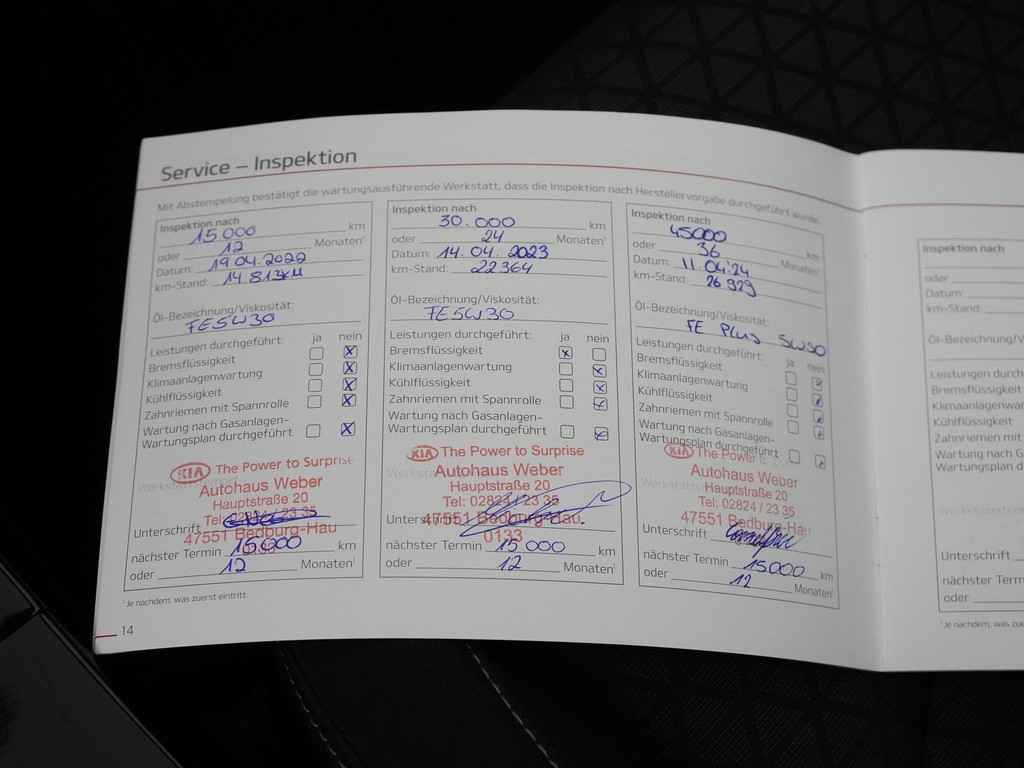 Service – Inspektion
Mit Abstempelung bestätigt die wartungsausführende Werkstatt, dass die Inspektion nach Herstellervorgabe durchgeführt wurde.
Inspektion nach
15 000 km
oder 12 Monaten¹
Datum: 19.04.2022
km-Stand: 14 813 KM
Öl-Bezeichnung/Viskosität:
FE5W30
Leistungen durchgeführt: ja nein
Bremsflüssigkeit X
Klimaanlagenwartung X
Kühlflüssigkeit X
Zahnriemen mit Spannrolle X
Wartung nach Gasanlagen-
Wartungsplan durchgeführt X
KIA The Power to Surprise
Autohaus Weber
Hauptstraße 20
Tel: 02824 / 23 35
47551 Bedburg-Hau
Unterschrift
nächster Termin 15.000 km
oder 12 Monaten¹
Inspektion nach
30.000 km
oder 24 Monaten¹
Datum: 14.04.2023
km-Stand: 22364
Öl-Bezeichnung/Viskosität:
FE5W30
Leistungen durchgeführt: ja nein
Bremsflüssigkeit x
Klimaanlagenwartung x
Kühlflüssigkeit x
Zahnriemen mit Spannrolle
Wartung nach Gasanlagen-
Wartungsplan durchgeführt
KIA The Power to Surprise
Autohaus Weber
Hauptstraße 20
Tel: 02824 / 23 35
47551 Bedburg-Hau
Unterschrift
0133
nächster Termin 15 000 km
oder 12 Monaten¹
Inspektion nach
45000 km
oder 36 Monaten¹
Datum: 11.04.24
km-Stand: 26 929
Öl-Bezeichnung/Viskosität:
FE PLUS 5W30
Leistungen durchgeführt: ja nein
Bremsflüssigkeit
Klimaanlagenwartung
Kühlflüssigkeit
Zahnriemen mit Spannrolle
Wartung nach Gasanlagen-
Wartungsplan durchgeführt
KIA The Power
Autohaus Weber
Hauptstraße 20
Tel: 02824 / 23 35
47551 Bedburg-Hau
Unterschrift
nächster Termin 15000 km
oder 12 Monaten¹
¹Je nachdem, was zuerst eintritt.
14
Inspektion nach
oder
Datum:
km-Stand:
Öl-Bezeichnung/V
Leistungen durchge
Bremsflüssigkeit
Klimaanlagenwar
Kühlflüssigkeit
Zahnriemen mit
Wartung nach G
Wartungsplan d
Unterschrift
nächster Termin
oder
¹Je nachdem, was zu